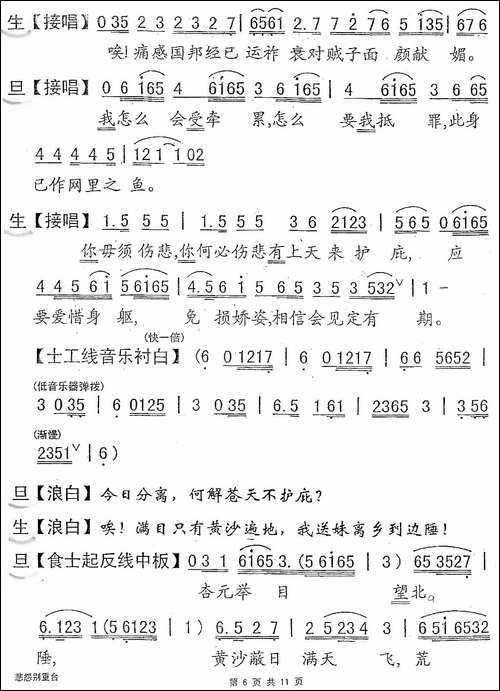 生【接唱】0 35 2 3 2 3 2 3 2 7 | 6561 2 7 7 2 7 6 5 135 | 6 7 6
唉!痛感国邦经已 运祚 衰对贼子面 颜献 媚。
旦【接唱】0 6 i65 4 6i65 3 6 i65 | 4 6i65 3 6 65
我怎么 会受牵 累,怎么 要我抵 罪,此身
4 4 4 4 5 | 1 2 1 1 02
已作网里之 鱼。
生【接唱】1. 5 5 5 | 1. 5 5 5 3 6 2123 | 5 6 5 0 6i65
你毋须 伤悲,你何必伤悲有上天 来 护 庇, 应
4 4 5 6 i 5 6i65 | 4. 5 6 1 5 6 5 3 5 3 532 ∨ | 1 -
要爱惜身 躯, 免 损娇姿,相信会见定有 期。
(快一倍)
【士工线音乐衬白】(6 0 1217 | 6 0 1217 | 6 6 5652 |
(低音乐器弹拨)
3 0 35 | 6 0125 | 3 0 35 | 6. 5 1 61 | 2365 3 | 3 56
(渐慢)
2351 ∨ | 6 )
旦【浪白】今日分离,何解苍天不护庇?
生【浪白】唉!满目只有黄沙遍地,我送妹离乡到边陲!
旦【食士起反线中板】0 3 1 6i65 3. (5 6i65 | 3 ) 65 3527 |
杏元举 目 望北。
6. 123 1 (5 6123 | 1 ) 6. 5 2 7 | 2 5 234 3 | 6 5 1 6532
陲, 黄沙蔽日 满天 飞,荒
悲怨别重台
第 6 页 共 11 页